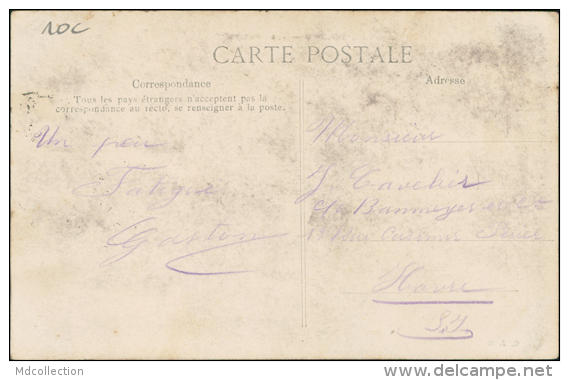 10c
CARTE POSTALE
Correspondance
Tous les pays étrangers n'acceptent pas la
correspondance au recto, se renseigner à la poste.
Adresse
Un peu
Fatigué
Gaston
Monsieur
J. Cavelier
Rue Casimir
Havre
S.I.
Mdcollection
www.delcampe.net